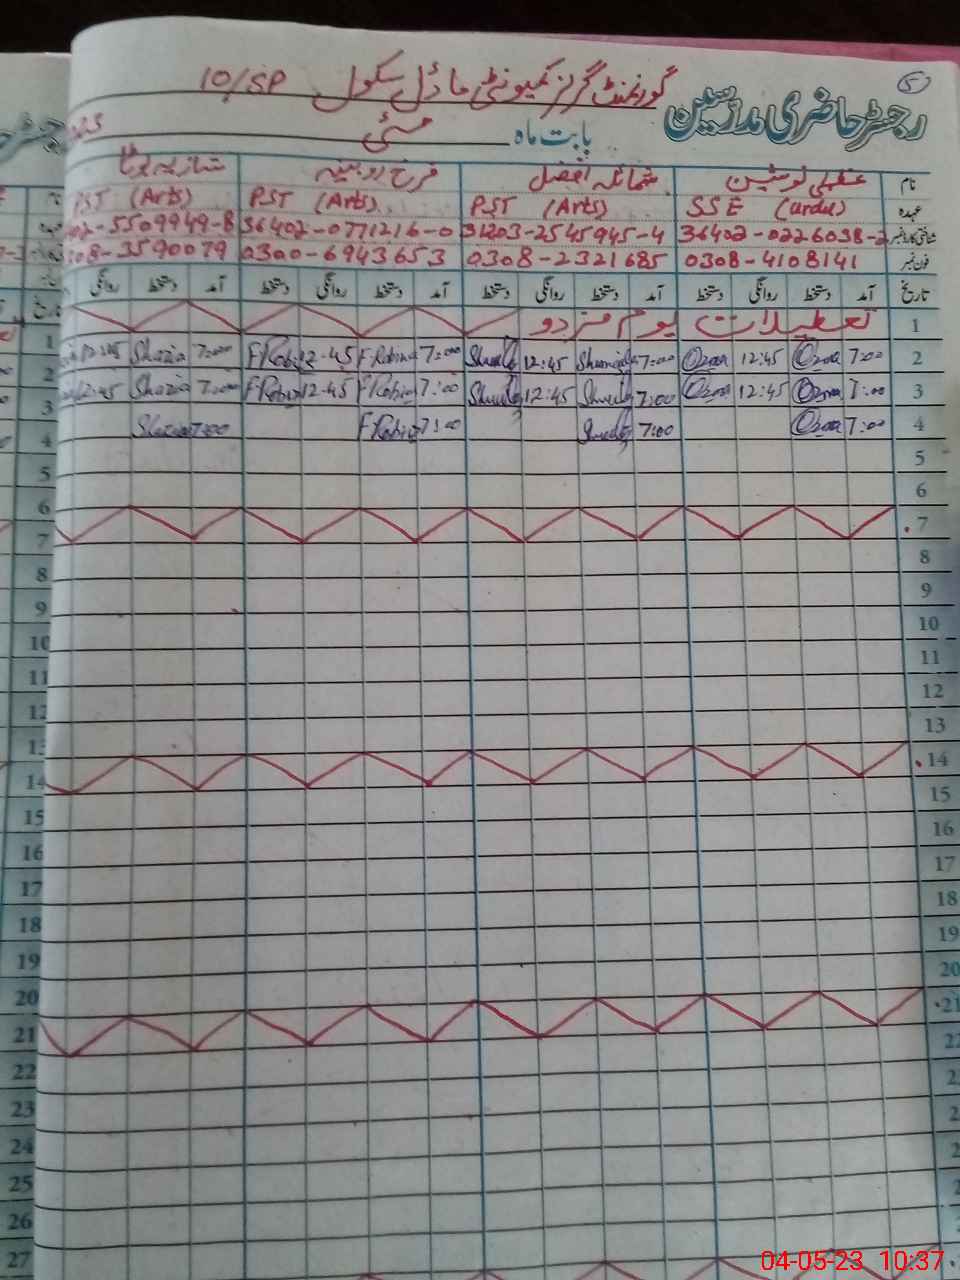 5
رجسٹر حاضری مدرسین
گورنمنٹ گرلز کمیونٹی ماڈل سکول 10/SP
بابت ماہ مئی
نام شمائلہ افضل
عہدہ SSE (urdu) PST (Arts) PST (Arts) PST (Arts)
شناختی کارڈ نمبر 36402-0226038-2 31203-2545945-4 36402-0771216-0 02-5509949-8
فون نمبر 0308-4108141 0308-2321685 0300-6943653 08-3590079
تاریخ آمد دستخط روانگی دستخط آمد دستخط روانگی دستخط آمد دستخط روانگی دستخط آمد دستخط روانگی
1 تعطیلات یوم مزدور
2 7:00 12:45 7:00 12:45 F Robina 7:00 12-45 F Robina 7:00 Shazia 12:45
3 7:00 12:45 7:00 12:45 F Robina 7:00 12:45 F Robina 7:00 Shazia 12:45
4 7:00 7:00 7:00 F Robina 7:00 Shazia
5
6
7
8
9
10
11
12
13
14
15
16
17
18
19
20
21
22
1
2
3
4
5
6
7
8
9
10
11
12
13
14
15
16
17
18
19
20
21
22
23
24
25
26
27
04-05-23 10:37